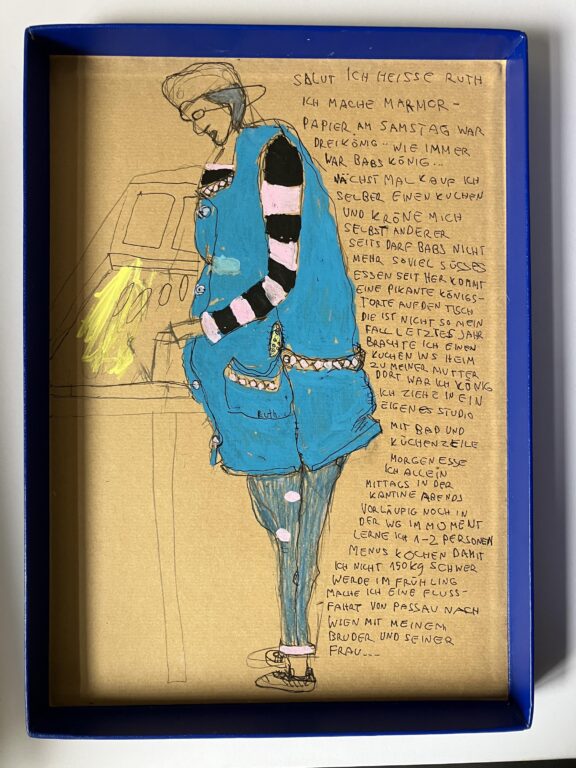 SALUT ICH HEISSE RUTH
ICH MACHE MARMOR-
PAPIER AM SAMSTAG WAR
DREIKÖNIG.. WIE IMMER
WAR BABS KÖNIG...
NÄCHST MAL KAUF ICH
SELBER EINEN KUCHEN
UND KRÖNE MICH
SELBST ANDERER
SEITS DARF BABS NICHT
MEHR SOVIEL SÜSSES
ESSEN SEIT HER KOMMT
EINE PIKANTE KÖNIGS-
TORTE AUF DEN TISCH
DIE IST NICHT SO MEIN
FALL LETZTES JAHR
BRACHTE ICH EINEN
KUCHEN INS HEIM
ZU MEINER MUTTER
DORT WAR ICH KÖNIG
ICH ZIEHE IN EIN
EIGENES STUDIO
MIT BAD UND
KÜCHENZEILE
MORGEN ESSE
ICH ALLEIN
MITTAGS IN DER
KANTINE ABENDS
VORLÄUPIG NOCH IN
DER WG IM MOMENT
LERNE ICH 1-2 PERSONEN
MENUS KOCHEN DAMIT
ICH NICHT 150KG SCHWER
WERDE IM FRÜHLING
MACHE ICH EINE FLUSS-
FAHRT VON PASSAU NACH
WIEN MIT MEINEM
BRUDER UND SEINER
FRAU....
RUTH